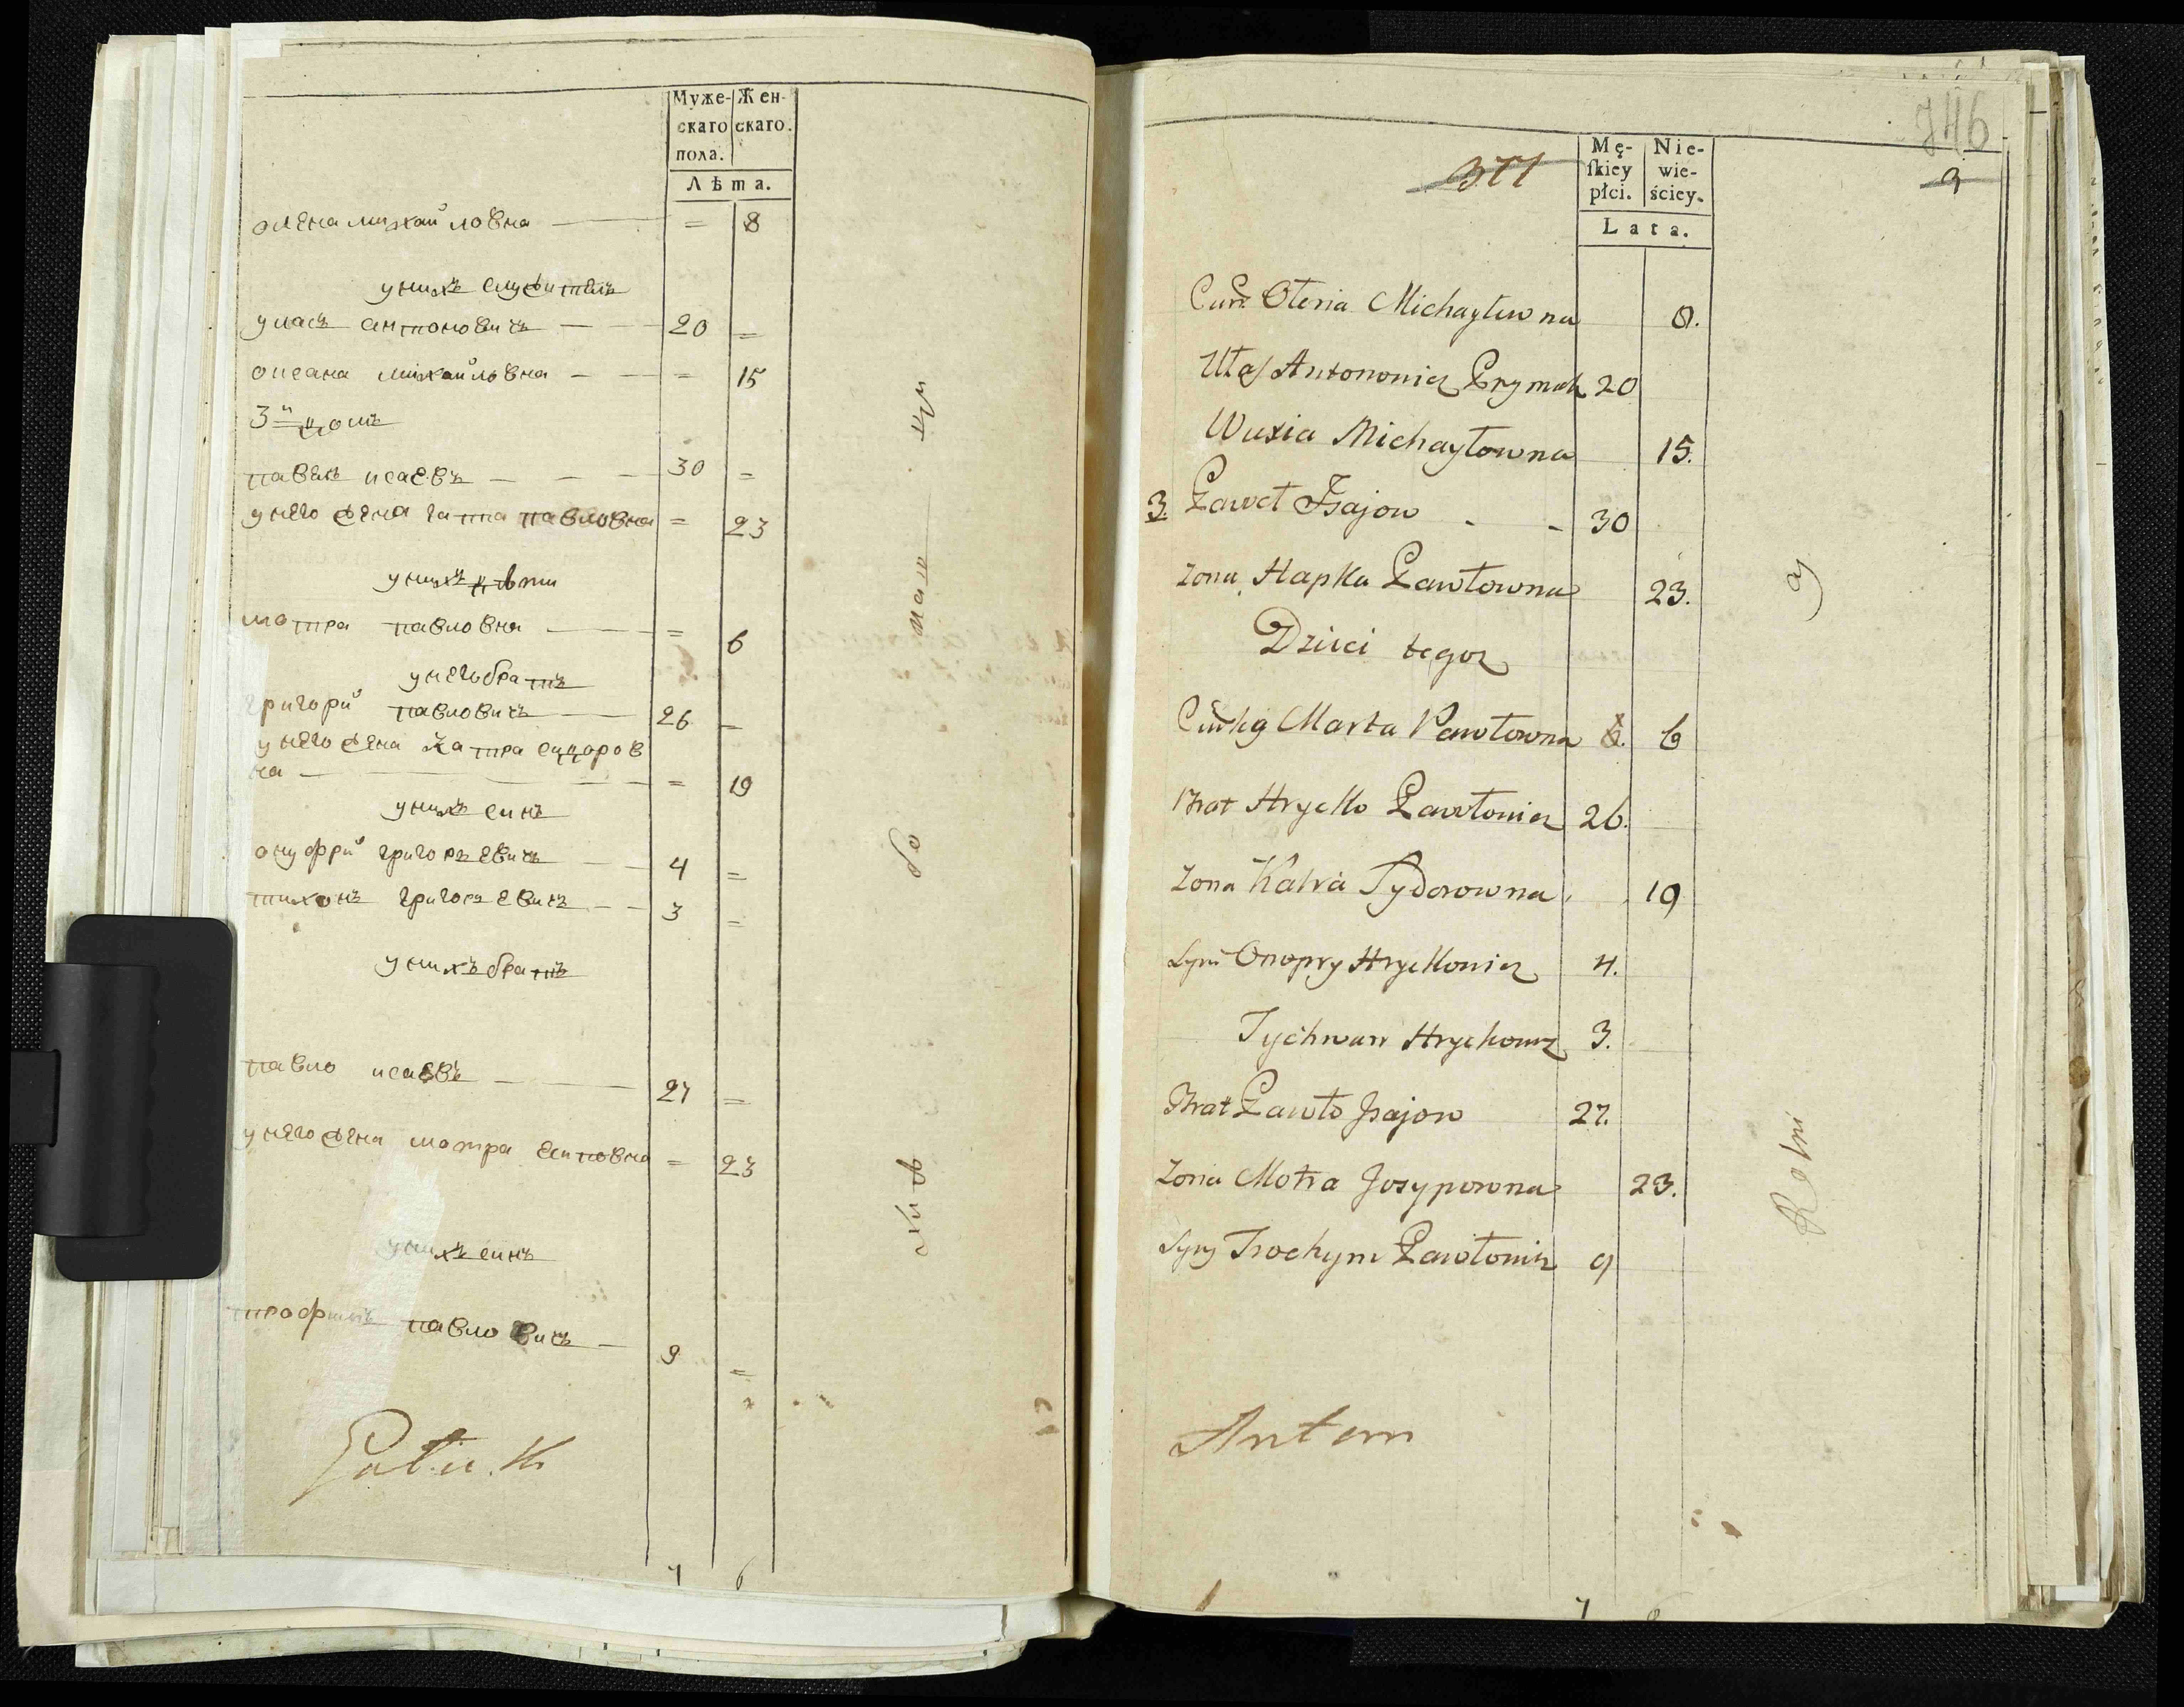 Муже-
скаго
пола.
Жен-
скаго.
Лѣта.
олена михайловна — = 8
у нихъ служитель
уласъ антоновичъ — 20 =
оксана михайловна — = 15
3й домъ
павелъ исаевъ — — — 30 =
у него жена гапка павловна = 23
у нихъ дѣти
мотра павловна — = 6
у него братъ
григорій павловичъ — 26 =
у него жена катра сидоров
на — = 19
у нихъ синъ
онуфрій григорьевичъ — 4 =
тихонъ григорьевичъ — 3 =
у нихъ братъ
павло исаевъ — 27 =
у него жена мотра еиповна = 23
у нихъ синъ
трофимъ павловичъ — 9 =
7 6
746
377
9
Mę-
ſkiey
płci.
Nie-
wie-
ściey.
Lata.
Olena Michayłowna 8.
Ułas Antonowicz Prymak 20
Michayłowna 15.
3. Paweł Isajow - - 30
żona Hapka Pawłowna 23.
Dzieci tegoż
Marta Pawłowna 6. 6
Brat Hryćko Pawłowicz 26.
żona Katra Sydorowna 19
Syn Onopry Hryckowicz 4.
Tychwan Hryckowicz 3.
Brat Pawło Isajow 27.
żona Motra Josypowna 23.
Syn Trochym Pawłowicz 9
Rotni
Antoni
7